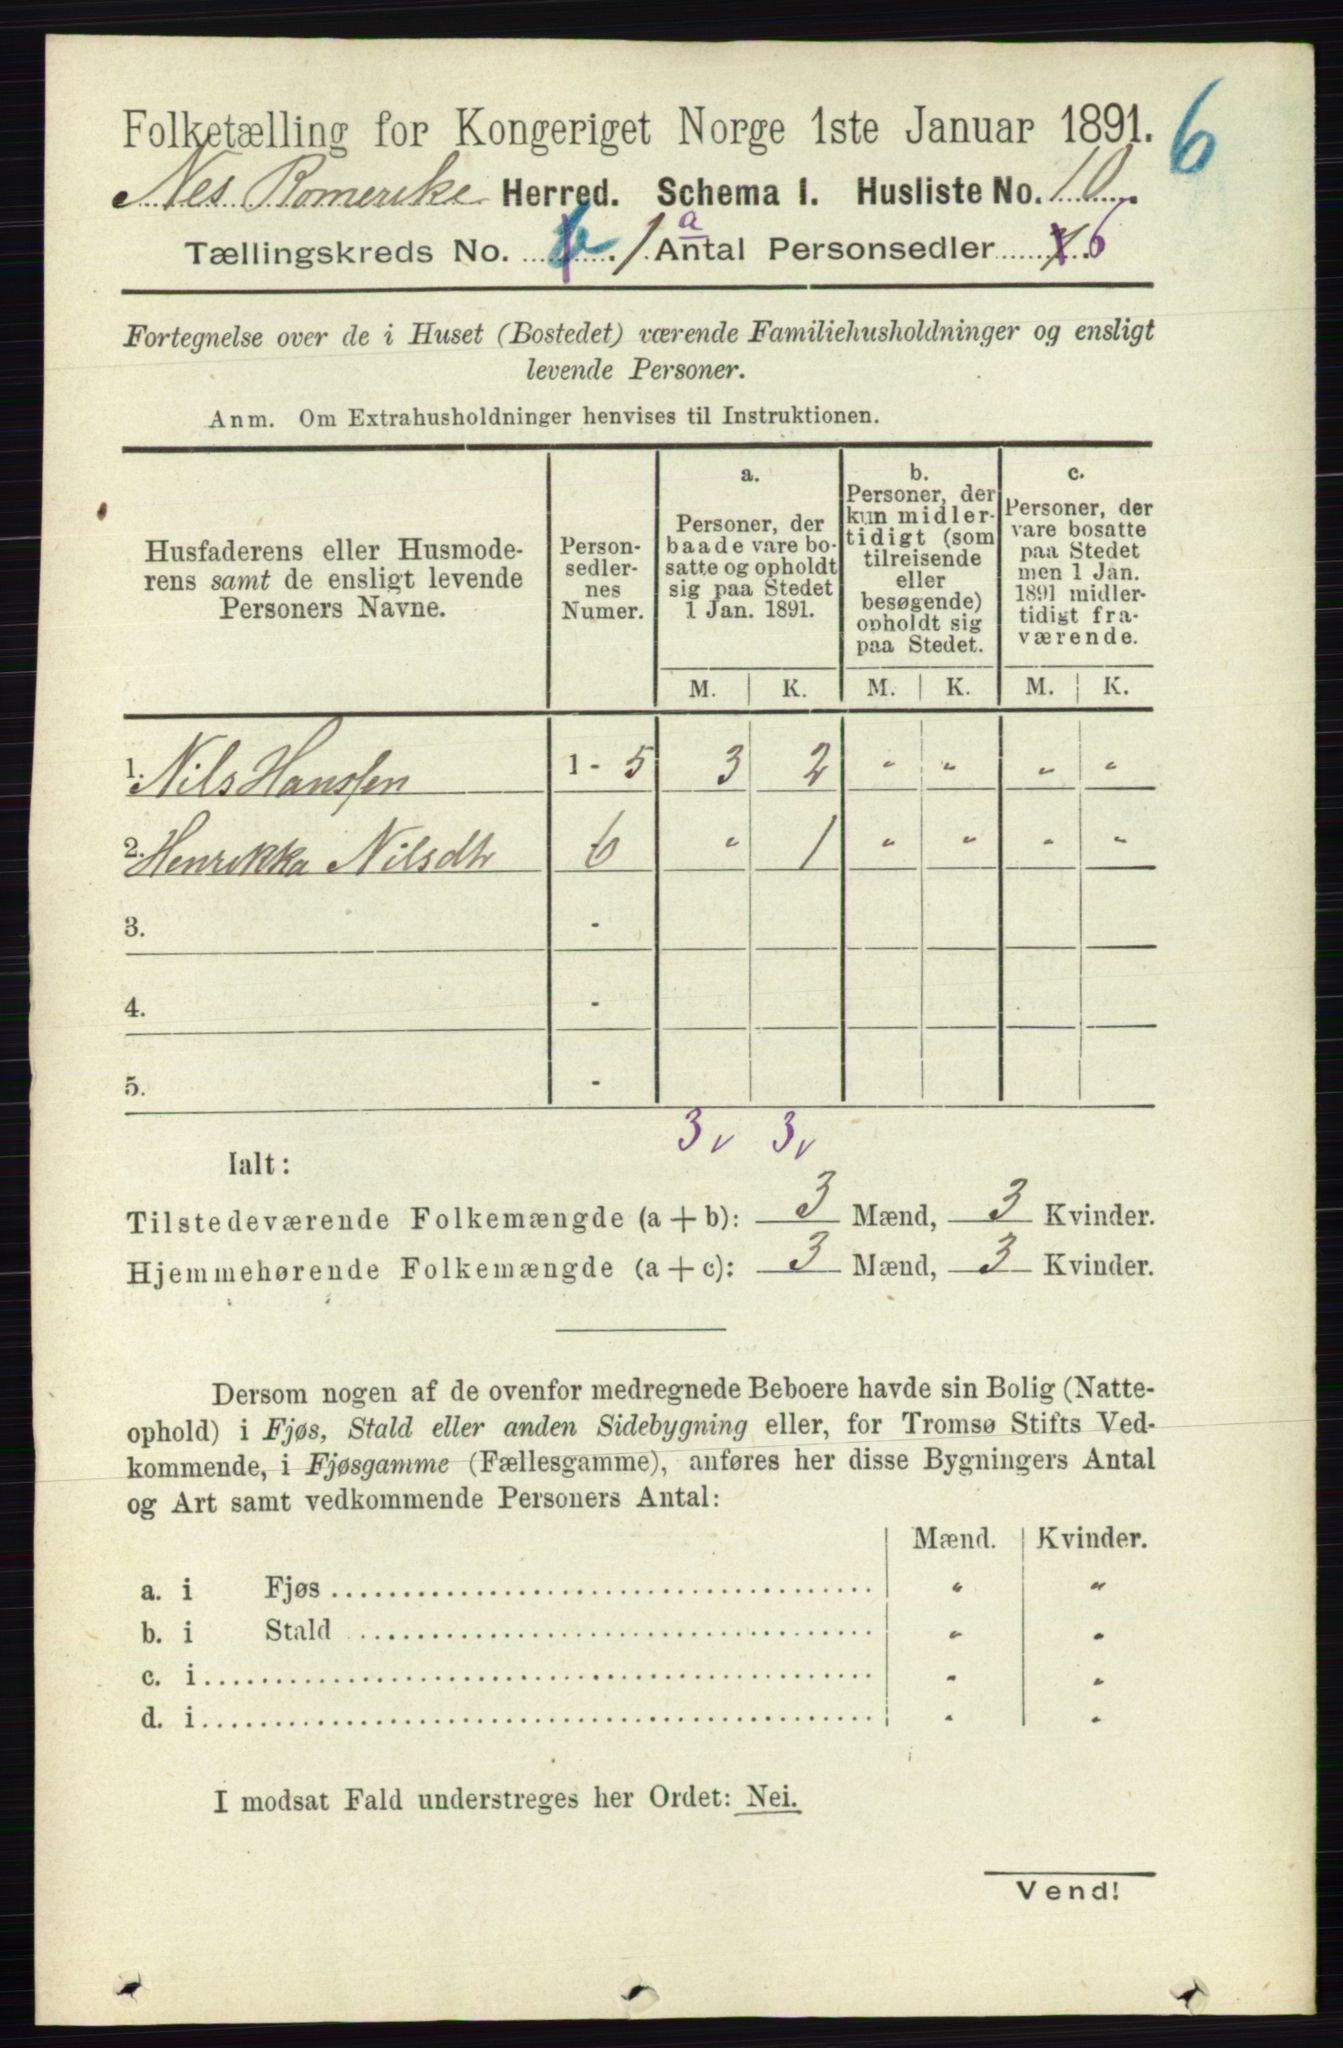 Folketælling for Kongeriget Norge 1ste Januar 1891.
6
Nes Romerike Herred. Schema I. Husliste No. 10
Tællingskreds No. 6 1 a Antal Personsedler 6
Fortegnelse over de i Huset (Bostedet) værende Familiehusholdninger og ensligt
levende Personer.
Anm. Om Extrahusholdninger henvises til Instruktionen.
Husfaderens eller Husmode-
rens samt de ensligt levende
Personers Navne.
Person-
sedler-
nes
Numer.
a.
Personer, der
baade vare bo-
satte og opholdt
sig paa Stedet
1 Jan. 1891.
b.
Personer, der
kun midler-
tidigt (som
tilreisende
eller
besøgende)
opholdt sig
paa Stedet.
c.
Personer, der
vare bosatte
paa Stedet
men 1 Jan.
1891 midler-
tidigt fra-
værende.
M. K. M. K. M. K.
1. Nils Hanssen 1 - 5 3 2 " " " "
2. Henrikka Nilsdtr 6 " 1 " " " "
3. -
4. -
5. -
3 v 3 v
Ialt:
Tilstedeværende Folkemængde (a + b): 3 Mænd, 3 Kvinder.
Hjemmehørende Folkemængde (a + c): 3 Mænd, 3 Kvinder.
Dersom nogen af de ovenfor medregnede Beboere havde sin Bolig (Natte-
ophold) i Fjøs, Stald eller anden Sidebygning eller, for Tromsø Stifts Ved-
kommende, i Fjøsgamme (Fællesgamme), anføres her disse Bygningers Antal
og Art samt vedkommende Personers Antal:
Mænd. Kvinder.
a. i Fjøs " "
b. i Stald " "
c. i " "
d. i " "
I modsat Fald understreges her Ordet: Nei.
Vend!